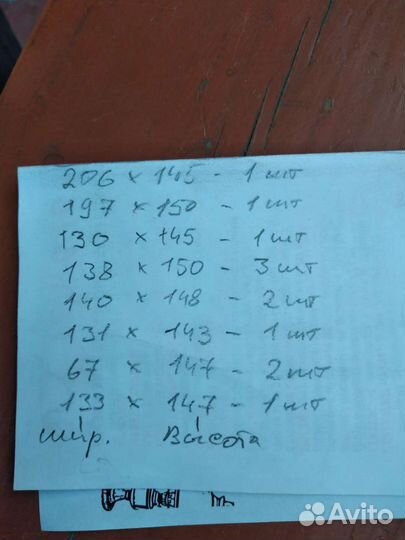 206 x 145 - 1 шт
197 x 150 - 1 шт
130 x 145 - 1 шт
138 x 150 - 3 шт
140 x 148 - 2 шт
131 x 143 - 1 шт
67 x 147 - 2 шт
133 x 147 - 1 шт
шир. Высота
Avito